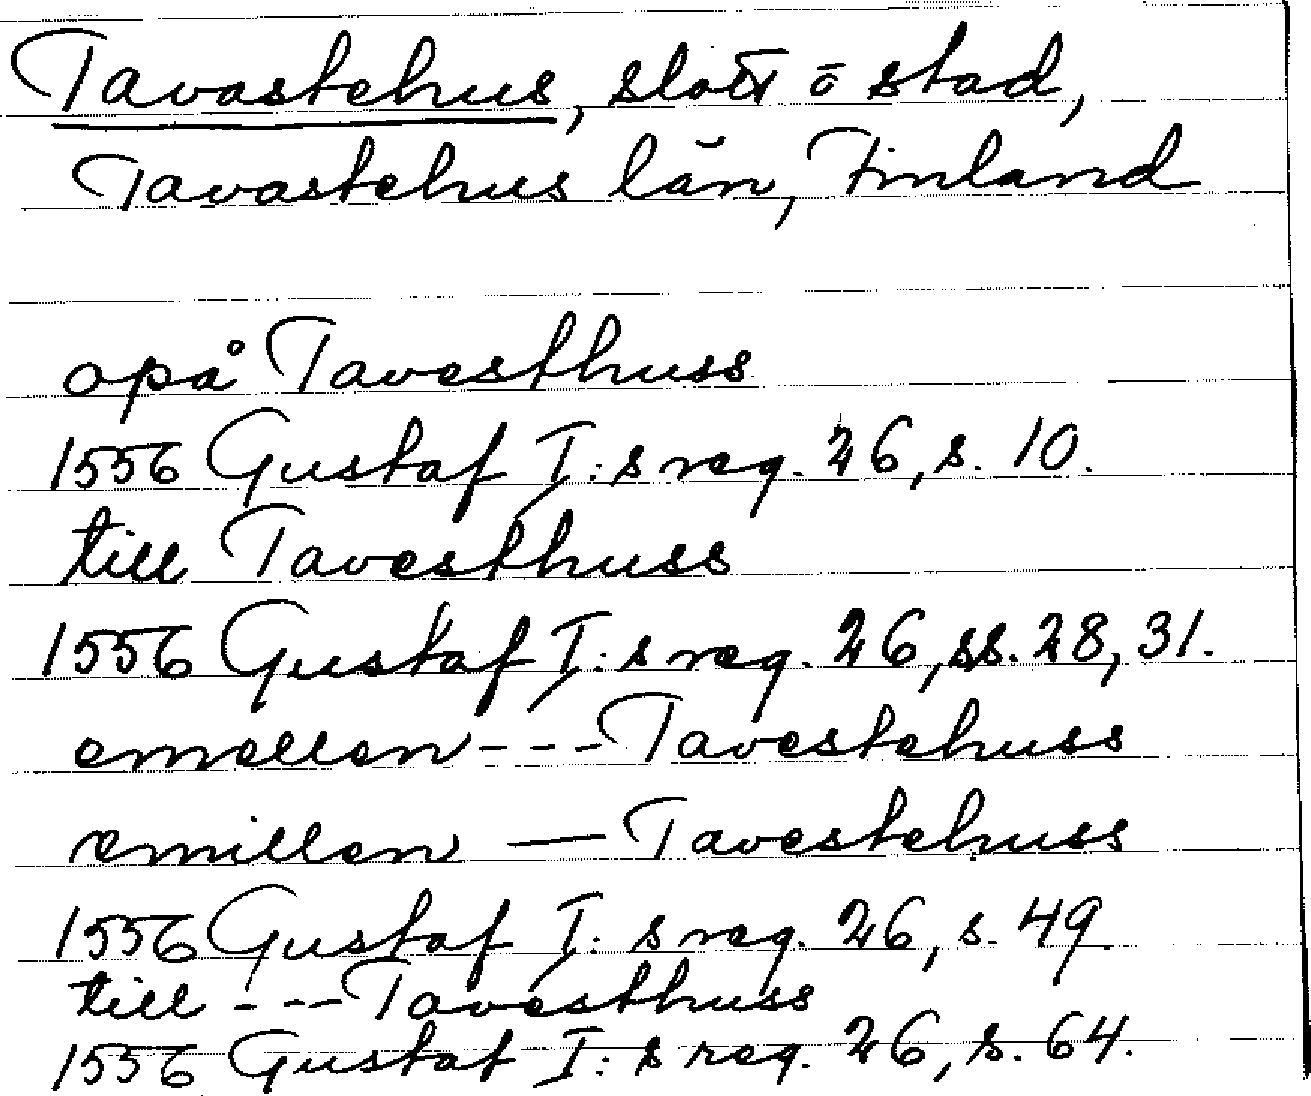 Tavastehus, slott o stad,
Tavastehus län, Finland
opå Tavesthuss
1556 Gustaf I:s reg. 26, s. 10.
till Tavesthuss
1556 Gustaf I:s reg. 26, ss. 28, 31.
emellen --- Tavestehuss
emillen — Tavestehuss
1556 Gustaf I:s reg. 26, s. 49
till --- Tavesthuss
1556 Gustaf I:s reg. 26, s. 64.